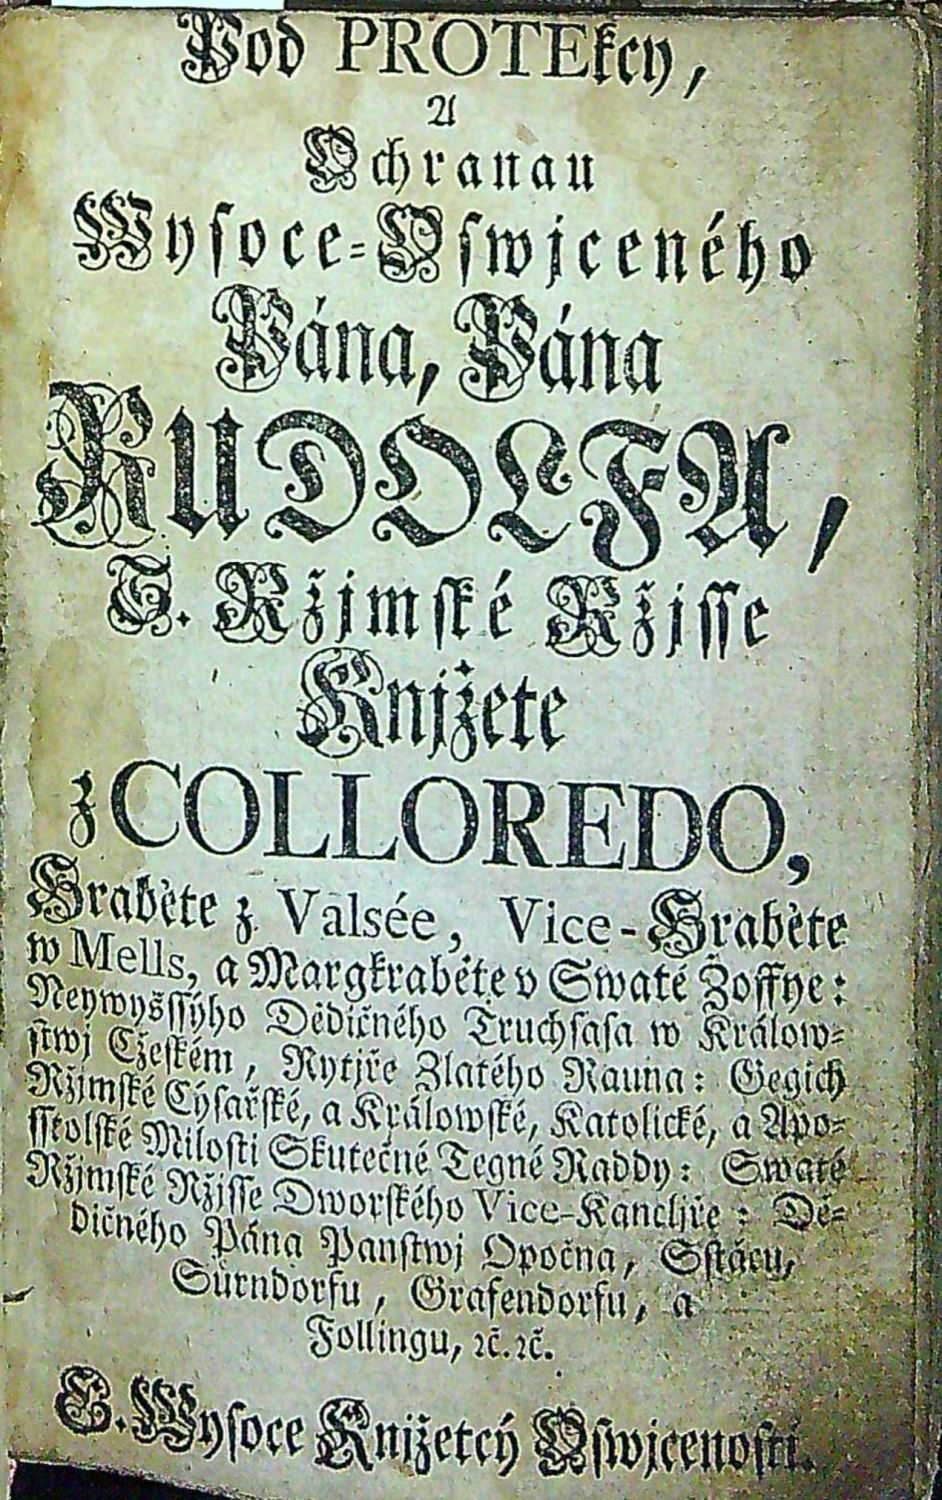 Pod PROTEkcy,
A
Ochranau
Wysoce-Oswjceného
Pána, Pána
RUDOLFA,
S. Ržjmské Ržjsse
Knjžete
z COLLOREDO,
Hraběte z Valsée, Vice-Hraběte
w Mells, a Margkraběte v Swaté Žoffye:
Neywyšssýho Dědičného Truchsasa w Králow-
stwj Cžeském, Rytjře Zlatého Rauna: Gegich
Ržjmské Cýsařské, a Králowské, Katolické, a Apo-
sstolské Milosti Skutečné Tegné Raddy: Swaté
Ržjmské Ržjsse Dworského Vice-Kancljře: Dě-
dičného Pána Panstwj Opočna, Sstácu,
Sürndorfu, Grafendorfu, a
Follingu, ꝛč. ꝛč.
S. Wysoce Knjžetcý Oswjcenosti.